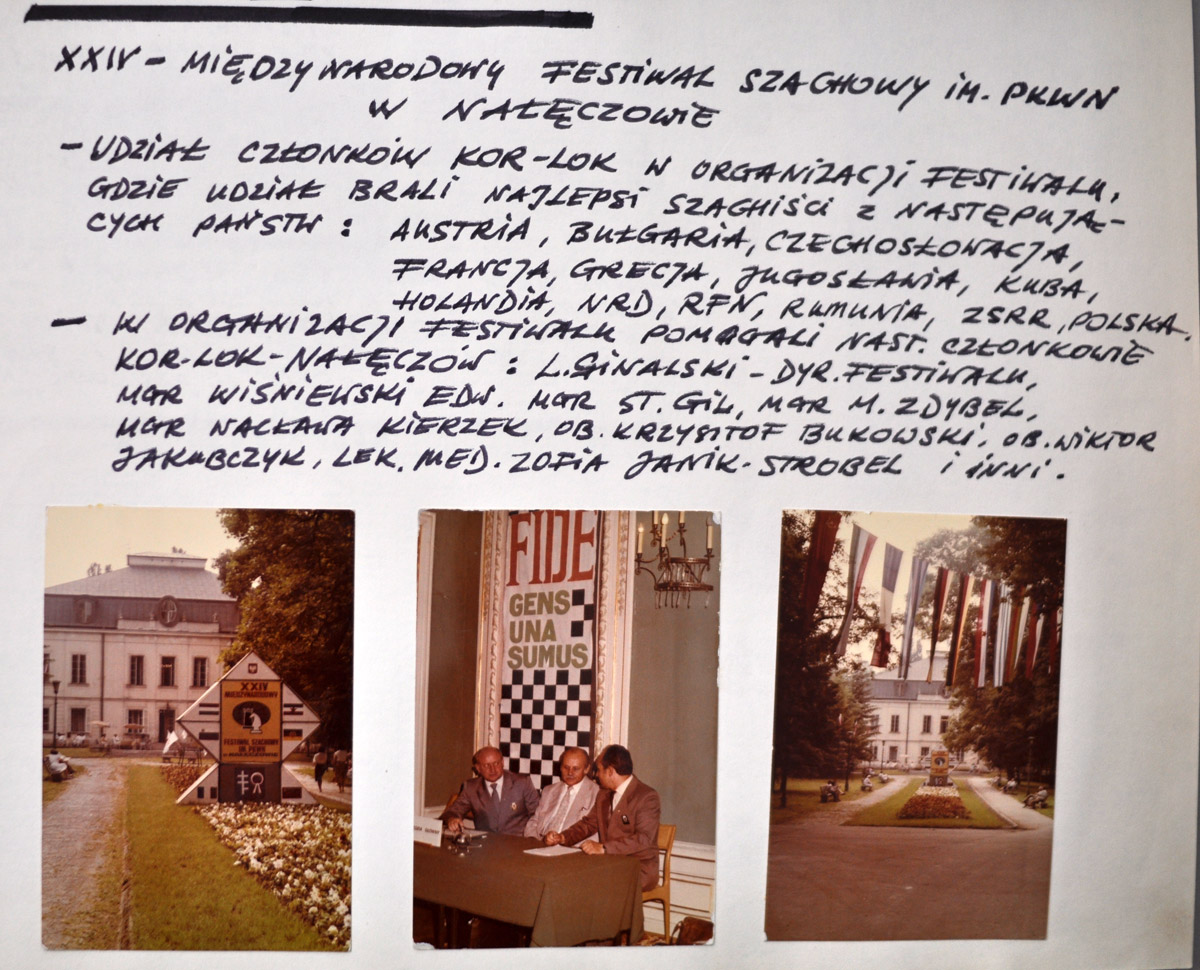 XXIV - MIĘDZYNARODOWY FESTIWAL SZACHOWY IM. PKWN
W NAŁĘCZOWIE
- UDZIAŁ CZŁONKÓW KOR-LOK W ORGANIZACJI FESTIWALU,
GDZIE UDZIAŁ BRALI NAJLEPSI SZACHIŚCI Z NASTĘPUJĄ-
CYCH PAŃSTW : AUSTRIA, BUŁGARIA, CZECHOSŁOWACJA,
FRANCJA, GRECJA, JUGOSŁAWIA, KUBA,
HOLANDIA, NRD, RFN, RUMUNIA, ZSRR, POLSKA.
- W ORGANIZACJI FESTIWALU POMAGALI NAST. CZŁONKOWIE
KOR-LOK-NAŁĘCZÓW : L.GINALSKI - DYR. FESTIWALU,
MGR WIŚNIEWSKI EDW. MGR ST. GIL, MGR M. ZDYBEL,
MGR WACŁAWA KIERZEK, OB. KRZYSZTOF BUKOWSKI, OB. WIKTOR
JAKUBCZYK, LEK. MED. ZOFIA JANIK-STROBEL I INNI.
XXIV
MIĘDZYNARODOWY
FESTIWAL SZACHOWY
IM. PKWN
FIDE
GENS
UNA
SUMUS